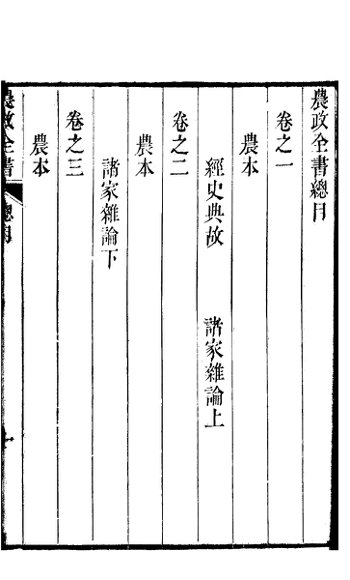 農政全書總目
卷之一
農本
經史典故 諸家雜論上
卷之二
農本
諸家雜論下
卷之三
農本
農政全書 總目 一